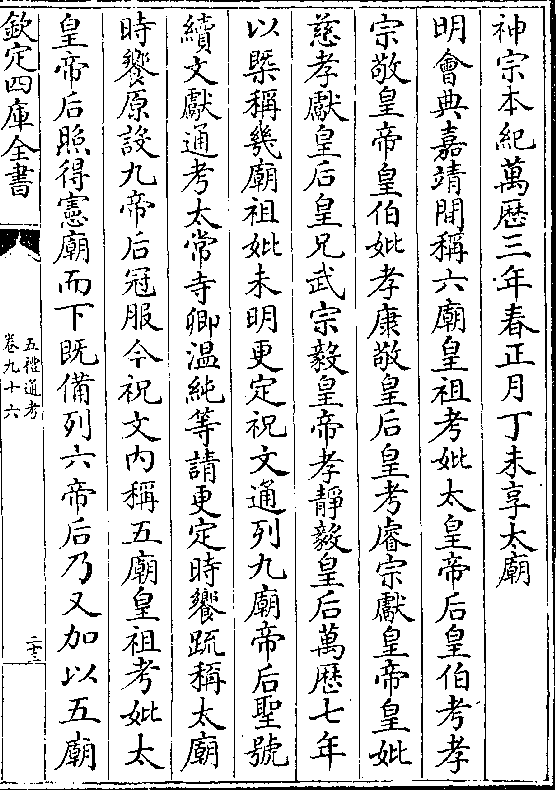 神宗本紀萬歴三年春正月丁未享太廟
明會典嘉靖間稱六廟皇祖考妣太皇帝后皇伯考孝
宗敬皇帝皇伯妣孝康敬皇后皇考睿宗獻皇帝皇妣
慈孝獻皇后皇兄武宗毅皇帝孝靜毅皇后萬歴七年
以槩稱幾廟祖妣未明更定祝文通列九廟帝后聖號
續文獻通考太常寺卿温純等請更定時饗䟽稱太廟
時饗原設九帝后冠服今祝文内稱五廟皇祖考妣太
皇帝后照得憲廟而下既備列六帝后乃又加以五廟
欽定四庫全書
五禮通考
卷九十六
二十三